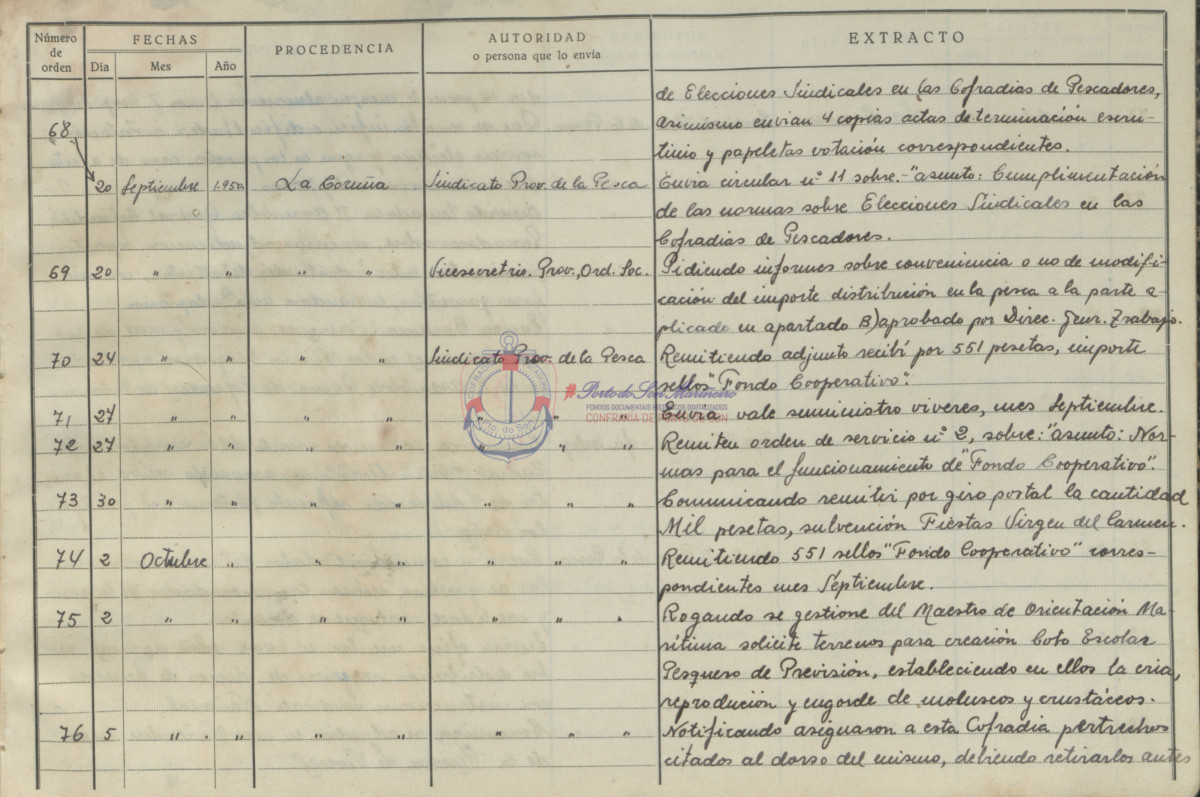 Número de orden FECHAS PROCEDENCIA AUTORIDAD o persona que lo envía EXTRACTO
Día Mes Año
de Elecciones Sindicales en las Cofradias de Pescadores,
68 asimismo envian 4 copias actas determinación escru-
tinio y papeletas votación correspondientes.
20 Septiembre 1.950 La Coruña Sindicato Prov. de la Pesca Envia circular nº 11 sobre.-"asunto: Cumplimentación
de las normas sobre Elecciones Sindicales en las
Cofradias de Pescadores.
69 20 " " " " Vicesecretrio. Prov., Ord. Soc. Pidiendo informes sobre conveniencia o no de modifi-
cación del importe distribución en la pesca a la parte a-
plicado en apartado B) aprobado por Direc. Genr. Trabajo.
70 24 " " " " Sindicato Prov. de la Pesca Remitiendo adjunto recibí por 551 pesetas, importe
sellos "Fondo Cooperativo".
71 27 " " " " " " " Envia vale suministro viveres, mes Septiembre.
72 27 " " " " " " " Remiten orden de servicio nº 2, sobre: "asunto: Nor-
mas para el funcionamiento de "Fondo Cooperativo".
73 30 " " " " " " " Comunicando remitir por giro postal la cantidad
Mil pesetas, subvención Fiestas Virgen del Carmen.
74 2 Octubre " " " " " " Remitiendo 551 sellos "Fondo Cooperativo" corres-
pondientes mes Septiembre.
75 2 " " " " " " " Rogando se gestione del Maestro de Orientación Ma-
rítima solicite terrenos para creación Coto Escolar
Pesquero de Previsión, estableciendo en ellos la cria,
reprodución y engorde de moluscos y crustáceos.
76 5 " " " " " " " Notificando asignaron a esta Cofradia pertrechos
citados al dorso del mismo, debiendo retirarlos antes
#Porto do Son Mariñeiro
CONFRARÍA DE PORTO DO SON
Pto. do Son